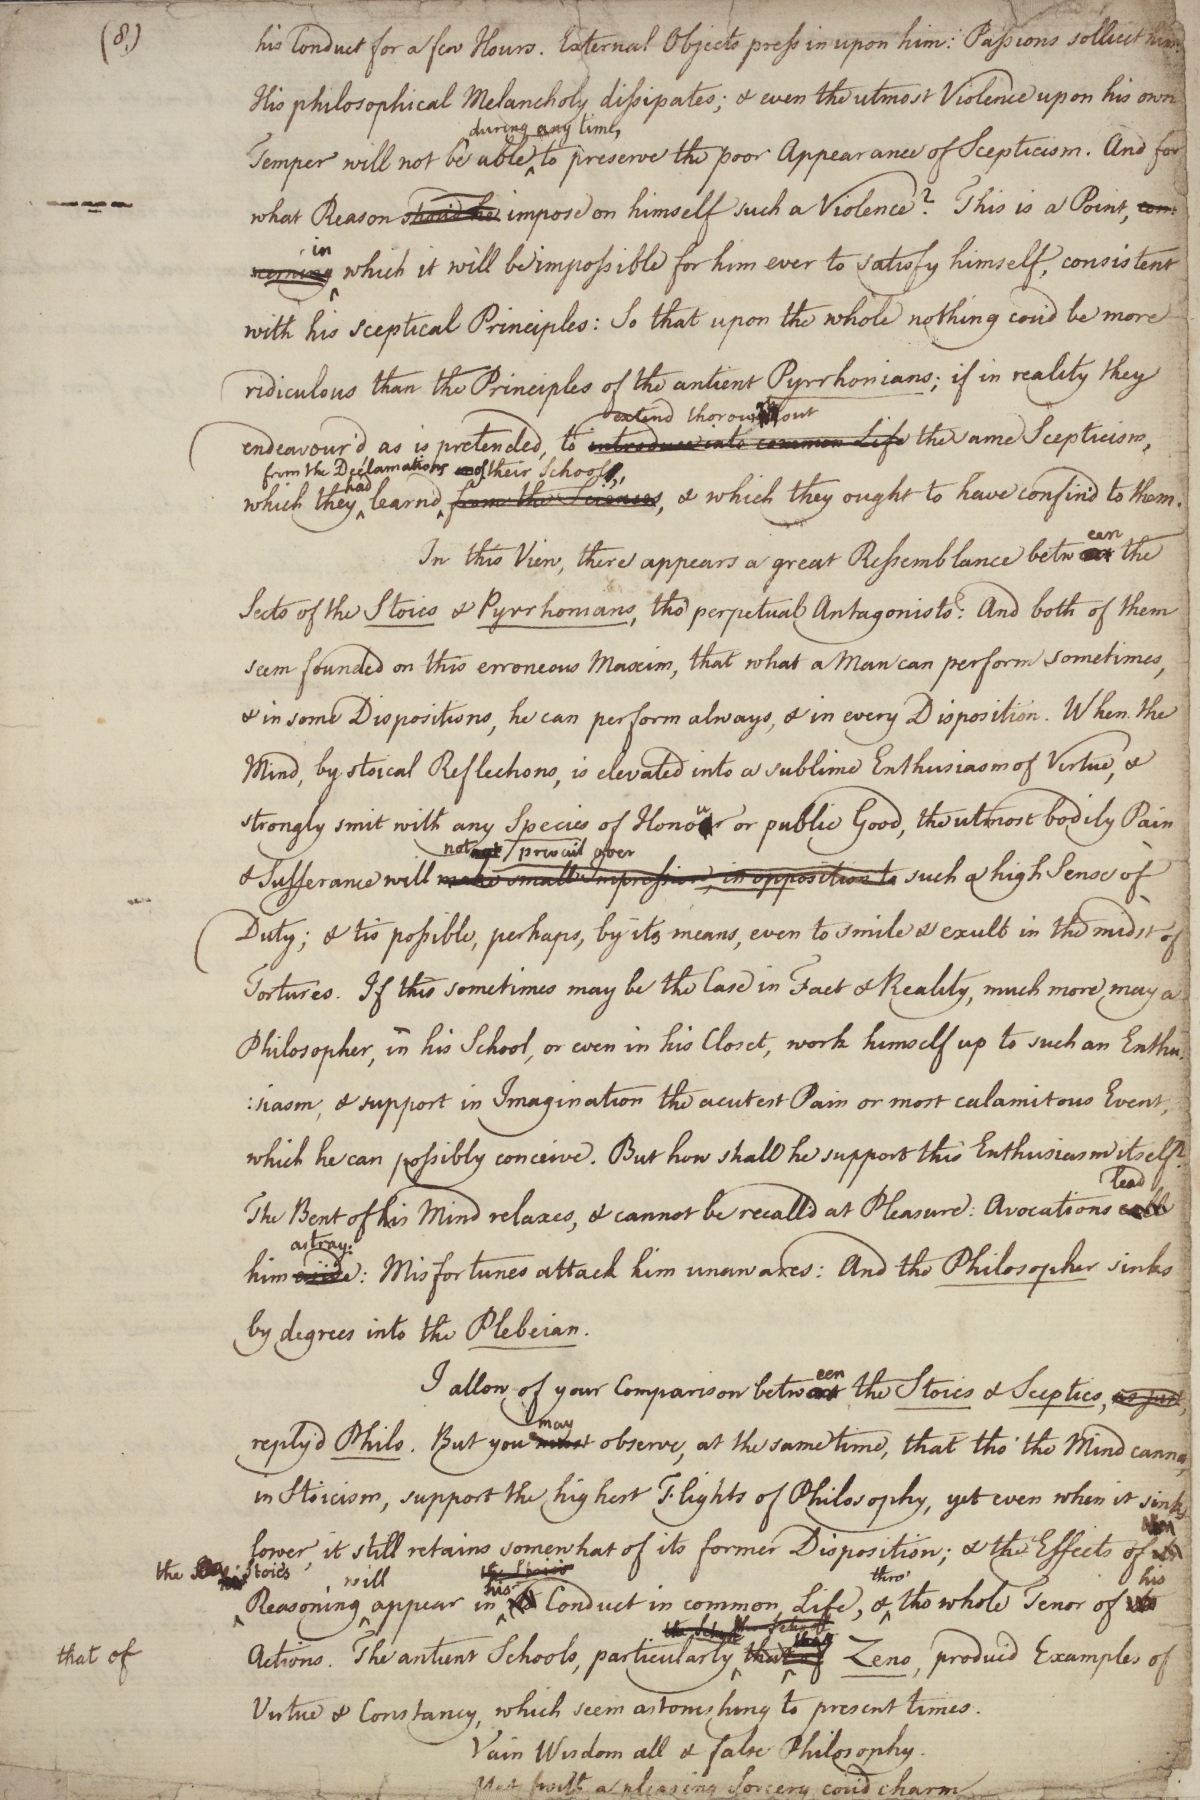 (8.)
his Conduct for a few Hours. External Objects press in upon him: Passions sollicit him:
His philosophical Melancholy dissipates; & even the utmost Violence upon his own
during any time,
Temper will not be able to preserve the poor Appearance of Scepticism. And for
what Reason shoud he impose on himself such a Violence? This is a Point, con:
in
:cerning which it will be impossible for him ever to satisfy himself, consistent
with his sceptical Principles: So that upon the whole nothing coud be more
ridiculous than the Principles of the antient Pyrrhonians; if in reality they
extend thorow out
endeavour'd as is pretended, to introduce into common Life the same Scepticism,
from the Declamations of their Schools,
had
which they learnd from the Sciences, & which they ought to have confind to them.
In this View, there appears a great Ressemblance betwixt the
een
Sects of the Stoics & Pyrrhonians, tho' perpetual Antagonists: And both of them
seem founded on this erroneous Maxim, that what a Man can perform sometimes,
& in some Dispositions, he can perform always, & in every Disposition. When the
Mind, by stoical Reflections, is elevated into a sublime Enthusiasm of Virtue, &
strongly smit with any Species of Honour or public Good, the utmost bodily Pain
not prevail over
& Sufferance will make small Impression, in opposition to such a high Sense of
Duty; & tis possible, perhaps, by its means, even to smile & exult in the midst of
Tortures. If this sometimes may be the Case in Fact & Reality, much more may a
Philosopher, in his School, or even in his Closet, work himself up to such an Enthu:
:siasm, & support in Imagination the acutest Pain or most calamitous Event,
which he can possibly conceive. But how shall he support this Enthusiasm itself?
lead
The Bent of his Mind relaxes, & cannot be recalld at Pleasure: Avocations call
astray:
him aside: Misfortunes attack him unawares: And the Philosopher sinks
by degrees into the Plebeian.
een
I allow of your Comparison betwixt the Stoics & Sceptics, as just,
may
reply'd Philo. But you must observe, at the same time, that tho' the Mind cannot,
in Stoicism, support the highest Flights of Philosophy, yet even when it sinks
lower, it still retains somewhat of its former Disposition; & the Effects of
the Stoics will his thro' his
Reasoning appear in Conduct in common Life, & tho whole Tenor of
that of
Actions. The antient Schools, particularly that of Zeno, producd Examples of
Virtue & Constancy, which seem astonishing to present times.
Vain Wisdom all & false Philosophy.
Yet with a pleasing Sorcery coud charm